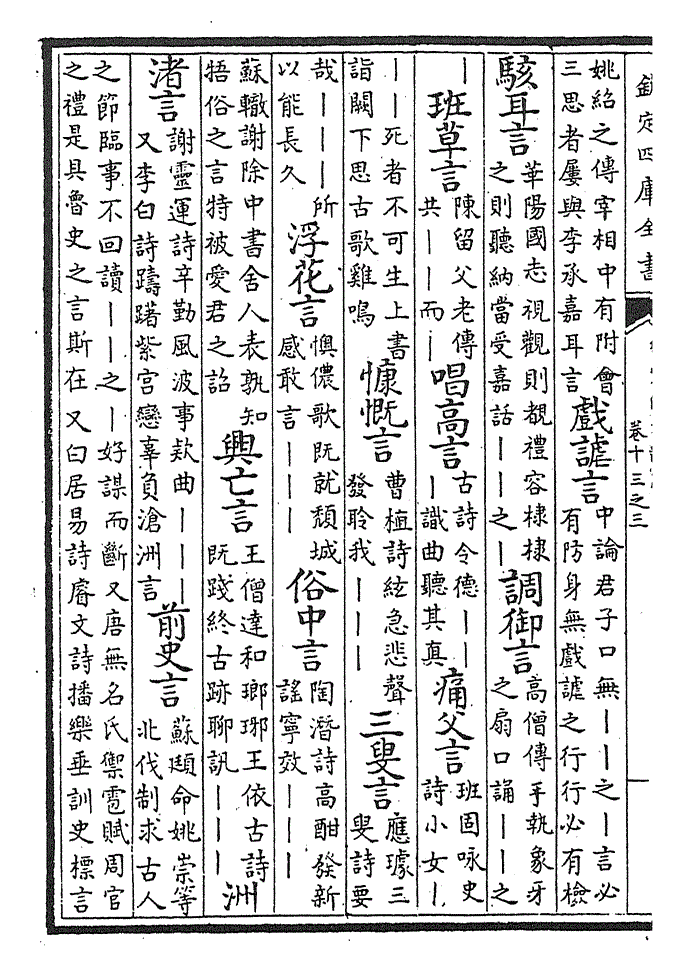 欽定四庫全書
卷十三之三
姚紹之傳宰相中有附會
三思者屢與李承嘉耳言
戲謔言
中論君子口無——之—言必
有防身無戲謔之行行必有檢
駭耳言
華陽國志視觀則覩禮容棣棣
之則聽納當受嘉話——之—
調御言
高僧傳手執象牙
之扇口誦——之
—
班草言
陳留父老傳
共——而—
唱高言
古詩令德——
—識曲聽其真
痛父言
班固咏史
詩小女—
——死者不可生上書
詣闕下思古歌雞鳴
慷慨言
曹植詩絃急悲聲
發聆我———
三叟言
應璩三
叟詩要
哉———所
以能長久
浮花言
懊儂歌既就頹城
感敢言———
俗中言
陶潛詩高酣發新
謠寧效———
蘇轍謝除中書舍人表孰知
牾俗之言特被愛君之詔
興亡言
王僧達和瑯琊王依古詩
既踐終古跡聊訊———
洲
渚言
謝靈運詩辛勤風波事欵曲———
又李白詩躊躇紫宮戀辜負滄洲言
前史言
蘇頲命姚崇等
北伐制求古人
之節臨事不回讀——之—好謀而斷又唐無名氏禦雹賦周官
之禮是具魯史之言斯在又白居易詩睿文詩播樂垂訓史標言